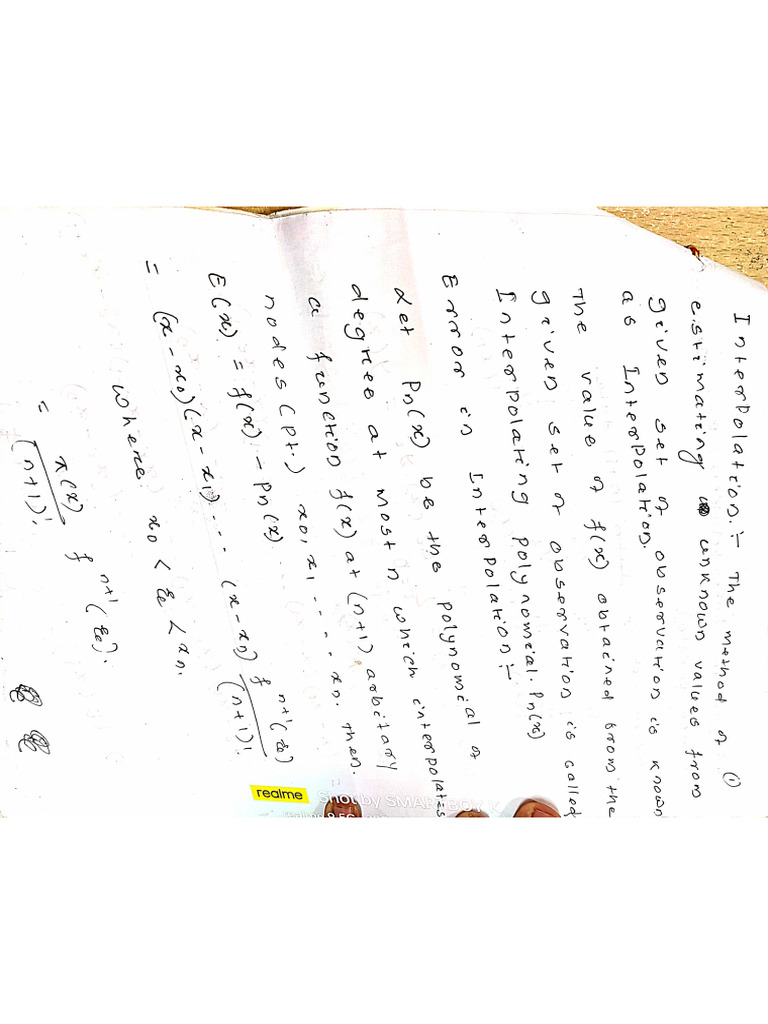 Interpolation :- The method of ①
estimating unknown values from
given set of observation is known
as Interpolation.
The value of f(x) obtained from the
given set of observation is called
Interpolating polynomial. Pn(x)
Error in Interpolation :-
Let Pn(x) be the polynomial of
degree at most n which interpolates
a function f(x) at (n+1) arbitary
nodes (pt.) x0, x1, ..... xn. then.
E(x) = f(x) - Pn(x) ....
= (x - x0)(x - x1) ... (x - xn) f^{n+1}(ξ) / (n+1)!
where x0 < ξ < xn.
= π(x) / (n+1)! f^{n+1}(ξ).
realme
Shot by SMART BOY K